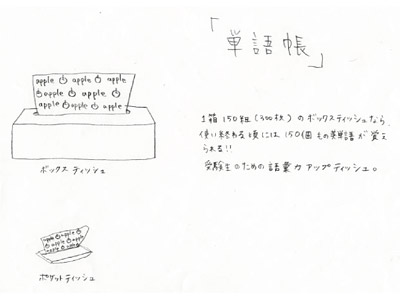 「単語帳」
apple apple apple
apple apple
apple apple apple
ボックスティッシュ
1箱150組(300枚)のボックスティッシュなら、
使い終わる頃には150個もの英単語が覚え
られる!!
受験生のための語彙力アップティッシュ。
apple apple
apple
apple
ポケットティッシュ